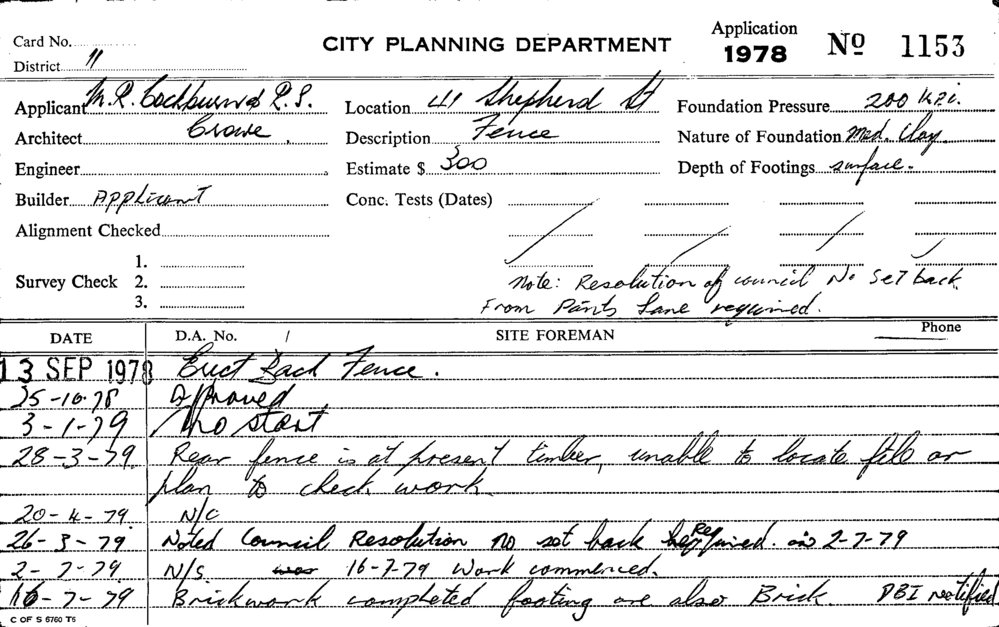 Card No.
CITY PLANNING DEPARTMENT
Application 1978 No 1153
District 11
Applicant M.R. Cockburn & R.S. Location 441 Shepherd St Foundation Pressure 200 K.P.i.
Architect Crowe Description Fence Nature of Foundation Med. Clay
Engineer Estimate $ 300 Depth of Footings surface.
Builder Applicant Conc. Tests (Dates)
Alignment Checked
1.
Survey Check 2.
3.
Note: Resolution of council No Set back
From Pants Lane required.
DATE D.A. No. / SITE FOREMAN Phone
13 SEP 1978 Erect Back Fence.
25-10-78 Approved
3-1-79 No start
28-3-79 Rear fence is at present timber, unable to locate file or
plan to check work.
20-4-79 N/C
26-3-79 Noted Council Resolution no set back Required. 2-7-79
2-7-79 N/S. 16-7-79 Work commenced.
16-7-79 Brickwork completed footing are also Brick. DBI notified
C OF S 6760 T6